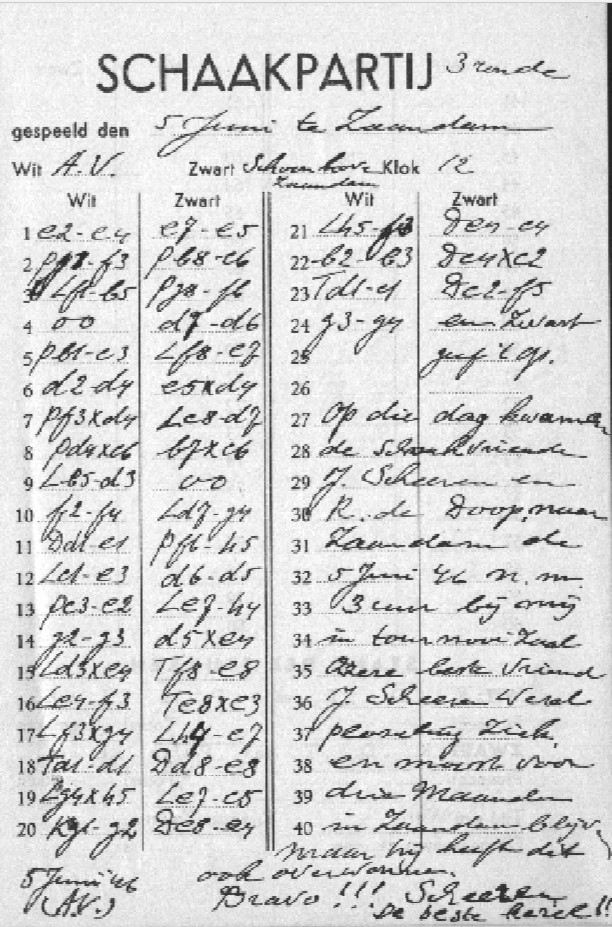 SCHAAKPARTIJ 3 ronde
gespeeld den 5 Juni te Zaandam
Wit A.V. Zwart Klok 12
Zaandam
Wit Zwart
1 e2-e4 e7-e5
2 Pg1-f3 Pb8-c6
3 Lf1-b5 Pg8-f6
4 oo d7-d6
5 Pb1-c3 Lf8-e7
6 d2-d4 e5xd4
7 Pf3xd4 Lc8-d7
8 Pd4xc6 b7xc6
9 Lb5-d3 oo
10 f2-f4 Ld7-g4
11 Dd1-e1 Pf6-h5
12 Lc1-e3 d6-d5
13 Pc3-e2 Le7-h4
14 g2-g3 d5xe4
15 Ld3xe4 Tf8-e8
16 Le4-f3 Te8xe3
17 Lf3xg4 Lh4-e7
18 Ta1-d1 Dd8-e8
19 Lg4xh5 Le7-c5
20 Kg1-g2 De8-e4
Wit Zwart
21 Lh5-f3 De4-c4
22 b2-b3 Dc4xc2
23 Td1-c1 Dc2-f5
24 g3-g4 en Zwart
25 gaf 't op.
26
27 Op die dag kwamen
28 de schaakvrienden
29 J. Scheeren en
30 R. de Doop naar
31 Zaandam de
32 5 Juni 46 n.m.
33 3 uur bij mij
34 in tournooi Zaal
35 Onze beste vriend
36 J. Scheeren
37 zich
38 en moest voor
39 drie Maanden
40 in Zaandam blijven
maar hij heeft dit
ook overwonnen.
Bravo!!! Scheeren
De beste kerel!!
5 Juni '46
(A.V.)